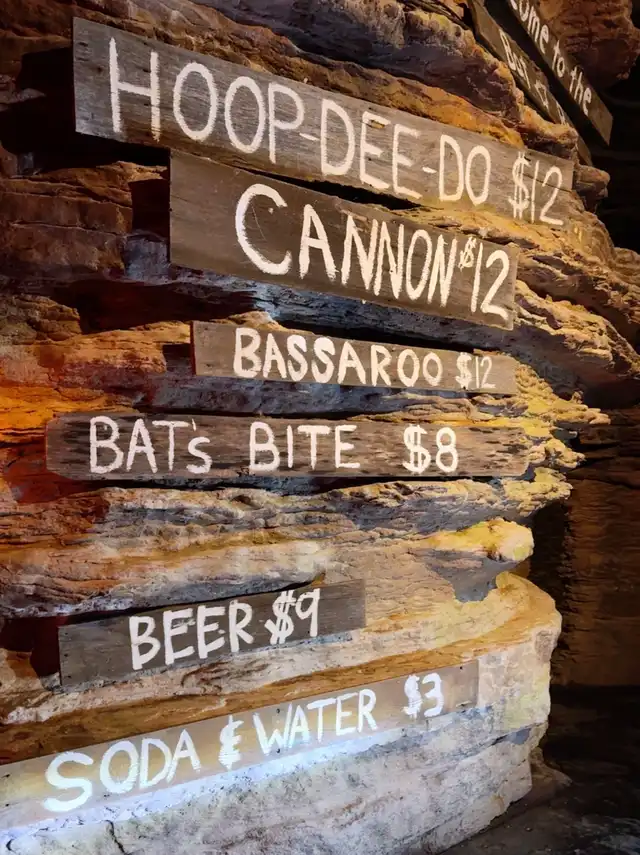 come to the
Bat
HOOP-DEE-DO $12
CANNON $12
BASSAROO $12
BAT's BITE $8
BEER $9
SODA & WATER $3